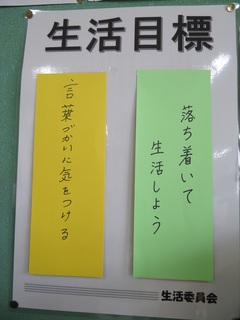 生活目標
落ち着いて
生活しよう
言葉づかいに気をつける
生活委員会